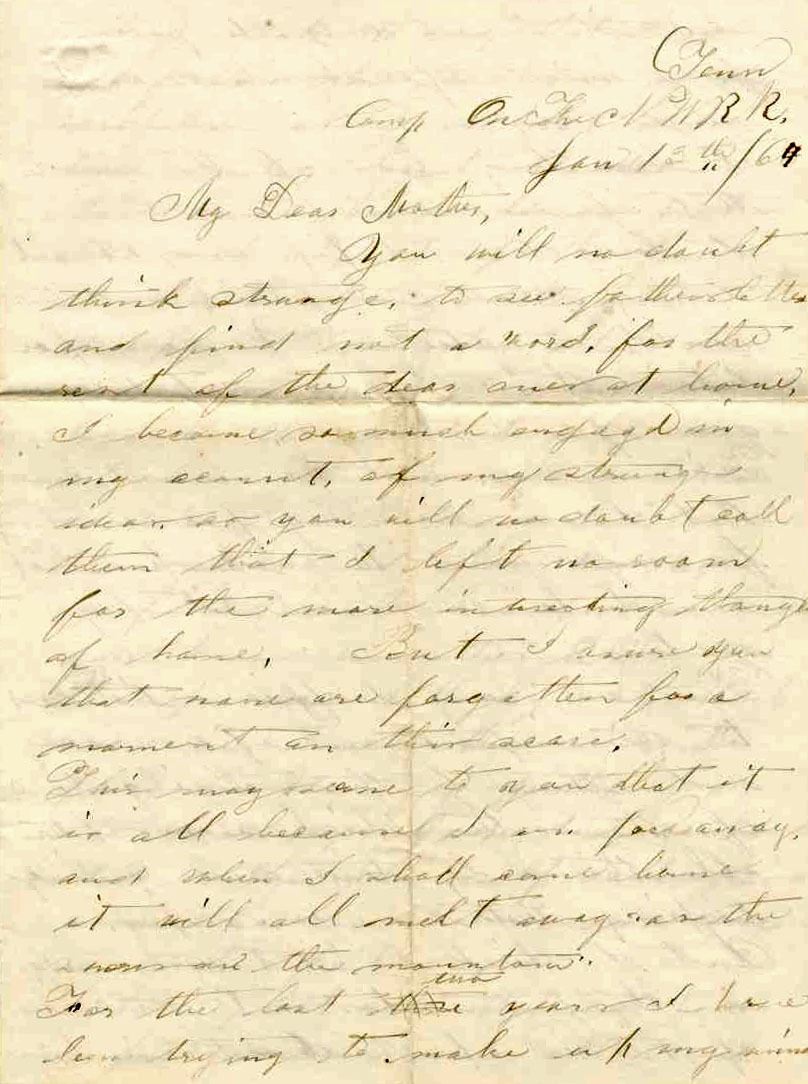 Tenn
Camp On The N W R R.
Jan 13th /64
My Dear Mother,
You will no doubt
think strange, to see fathers letter
and find not a word, for the
rest of the dear ones at home,
I became so much engagd in
my acount, of my strange
ideas. as you will no doubt call
them that I left no room
for the more interesting things
of home, But I asure you
that none are forgotten for a
moment on this scare,
This may seame to you that it
is all because I am far away,
and when I shall come home
it will all melt away as the
on the mountain".
For the last two years I have
been trying to make up my mind